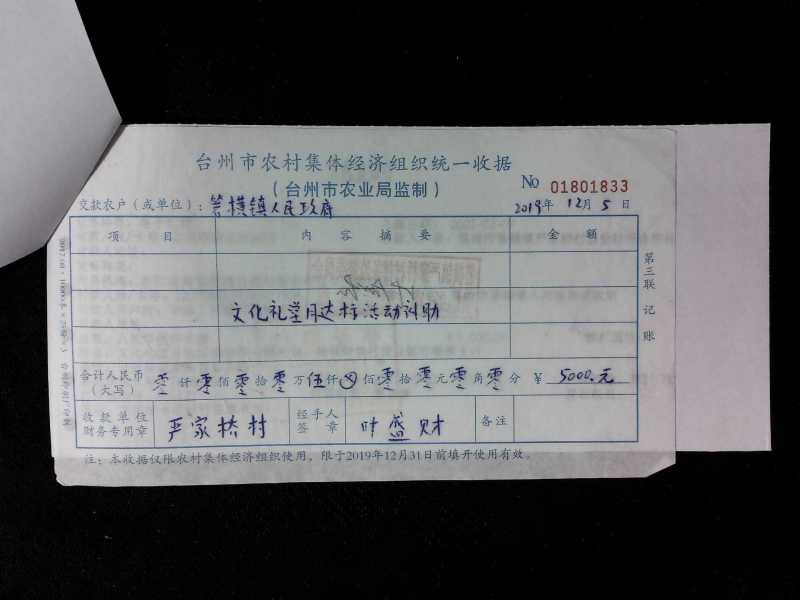 台州市农村集体经济组织统一收据
(台州市农业局监制)
No 01801833
交款农户(或单位):箬横镇人民政府
2019年12月5日
项目 内容摘要 金额
文化礼堂月达标活动补助
合计人民币(大写) 零仟零佰零拾零万伍仟 佰零拾零元零角零分 ¥ 5000.元
收款单位财务专用章 严家桥村 经手人签章 叶盛财 备注
注:本收据仅限农村集体经济组织使用,限于2019年12月31日前填开使用有效。
第三联 记账